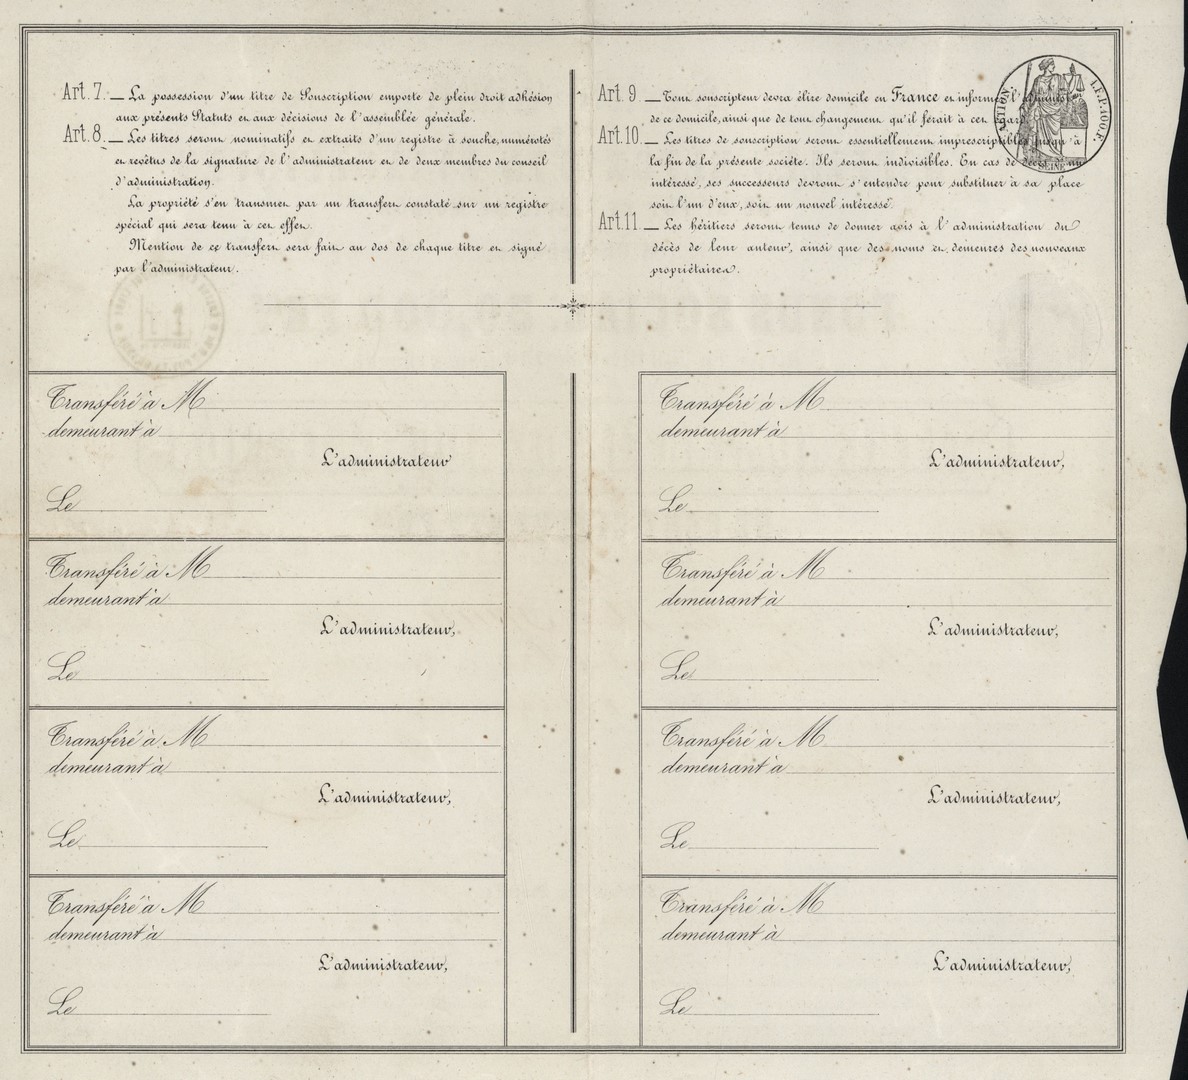 Art. 7. — La possession d'un titre de Souscription emporte de plein droit adhésion
aux présents Statuts et aux décisions de l'assemblée générale.
Art. 8. — Les titres seront nominatifs et extraits d'un registre à souche, numérotés
et revêtus de la signature de l'administrateur et de deux membres du conseil
d'administration.
La propriété s'en transmet par un transfert constaté sur un registre
spécial qui sera tenu à cet effet.
Mention de ce transfert sera fait au dos de chaque titre et signé
par l'administrateur.
Art. 9. — Tout souscripteur devra élire domicile en France et informer l'
de ce domicile, ainsi que de tout changement qu'il ferait à cet égard.
Art. 10. — Les titres de souscription seront essentiellement imprescriptibles jusqu'à
la fin de la présente société. Ils seront indivisibles. En cas de décès d'un
intéressé, ses successeurs devront s'entendre pour substituer à sa place
soit l'un d'eux, soit un nouvel intéressé.
Art. 11. — Les héritiers seront tenus de donner avis à l'administration du
décès de leur auteur, ainsi que des noms et demeures des nouveaux
propriétaires.
ACTION
I.F.P. 100 F.
SEINE
Transféré à M
demeurant à
L'administrateur
Le
Transféré à M
demeurant à
L'administrateur,
Le
Transféré à M
demeurant à
L'administrateur,
Le
Transféré à M
demeurant à
L'administrateur,
Le
Transféré à M
demeurant à
L'administrateur,
Le
Transféré à M
demeurant à
L'administrateur,
Le
Transféré à M
demeurant à
L'administrateur,
Le
Transféré à M
demeurant à
L'administrateur,
Le